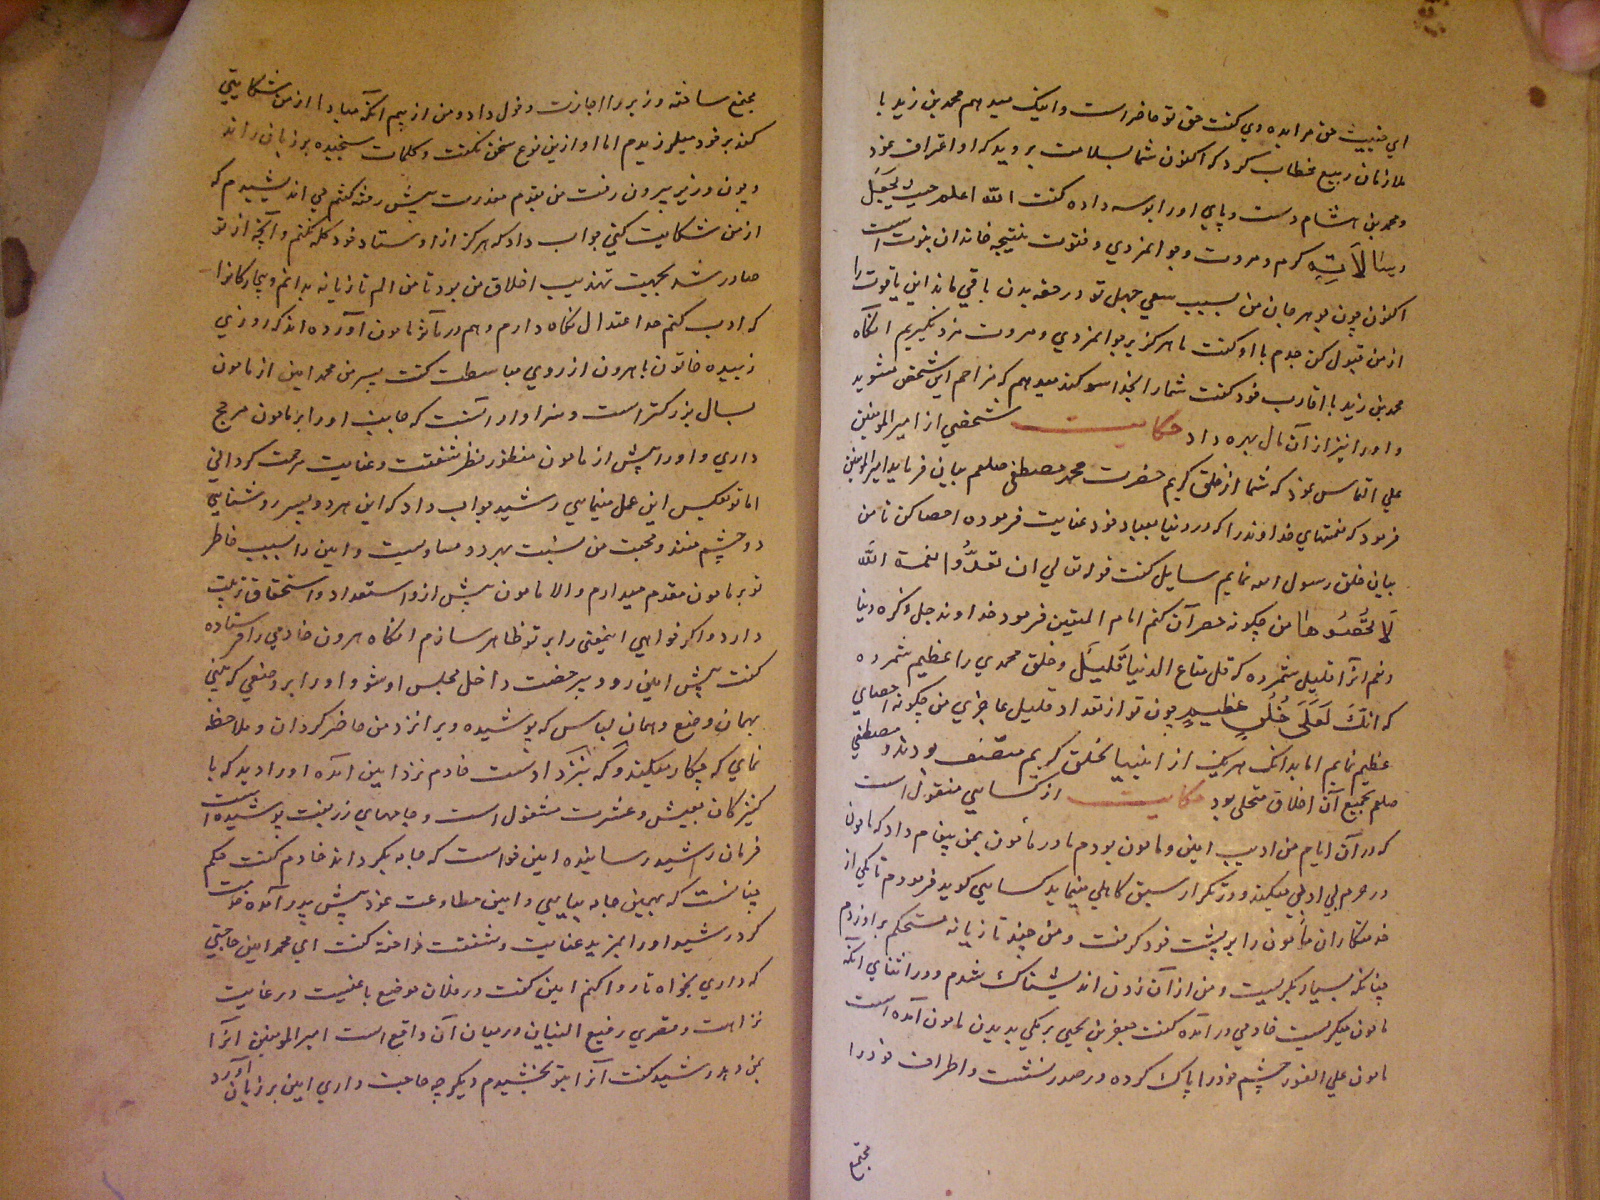 اي خبيث حق مرا بده وي كفت حق تو حاضر است واينك ميدهم محمد بن زيد با
ملازمان ربيع خطاب كرد كه اكنون شما بسلامت برويد كه او اعتراف نمود
ومحمد بن هشام دست وپاي او را بوسه داده كفت الله اعلم حيث يجعل
رسالاته كرم ومروت وجوانمردي وفتوت نتيجه خاندان نبوت است
اكنون چون جوهر جان من بسبب سعي جميل تو در حقه بدن باقي ماند اين ياقوت را
از من قبول كن جدم با او كفت ما هركز بر جوانمردي ومروت مزد نكيريم انكاه
محمد بن زيد با اقارب خود كفت شما را بخدا سوكند ميدهم كه مزاحم اين شخص نشويد
واو را نيز از آن مال بهره داد حكايت شخصي از امير المومنين
علي التماس نمود كه شما از خلق كريم حضرت محمد مصطفى صلعم بيان فرمايد امير المومنين
فرمود كه نعمتهاي خداوند را كه در دنيا بعباد خود عنايت فرموده احصا كن تا من
بيان خلق رسول الله نمايم سايل كفت قوله تعالي ان تعدُّوا نعمة الله
لا تحصوها من چكونه حصر آن كنم امام المتقين فرمود خداوند جل ذكره دنيا
ونعم انرا قليل شمرده كه قل متاع الدنيا قليل وخلق محمدي را عظيم شمرده
كه انك لعلى خلق عظيم چون تو از تعداد قليل عاجزي من چكونه احصاي
عظيم نمايم اما بدانك هر يك از انبيا بخلق كريم متصف بودند ومصطفي
صلعم بجميع آن اخلاق متحلي بود حكايت از كسايي منقول است
كه در آن ايام من اديب امين ومامون بودم مادر مأمون بمن پيغام داد كه مامون
در حرم بي ادبي ميكند ودر تكرار سبق كاهلي مينمايد كسايي كويد فرمودم تا يكي از
خدمتكاران مأمون را بر پشت خود كرفت ومن چند تازيانه مستحكم بر او زدم
چنانكه بسيار بكريست ومن از آن زدن انديشناك شدم ودر اثناي انكه
مامون ميكريست خادمي در آمده كفت جعفر بن يحيي برمكي بديدن مامون آمده است
مامون علي الفور چشم خود را پاك كرده در صدر نشست واطراف خود را
مجتمع
مجتمع ساخته وزير را اجازت دخول داد ومن از بيم انكه مبادا از من شكايتي
كند بر خود ميلرزيدم اما او ازين نوع سخن نكفت وكلمات سنجيده بر زبان راند
وچون وزير بيرون رفت من بقدم معذرت پيش رفته كفتم مي انديشيدم كه
از من شكايت كني جواب داد كه هركز از اوستاد خود كله نكنم وآنچه از تو
صادر شد بجهت تهذيب اخلاق من بود تا من الم تازيانه بدانم وبيچاركانرا
كه ادب كنم حد اعتدال نكاه دارم وهم در مآثر مامون آورده اند كه روزي
زبيده خاتون با هرون از روي مباسطت كفت پسر من محمد امين از مامون
بسال بزركتر است وسزاوار آنست كه جانب او را بر مامون مرجح
داري واو را پيش از مامون منظور نظر شفقت وعنايت مرحمت كرداني
اما تو بعكس اين عمل مينمايي رشيد جواب داد كه اين هر دو پسر روشنايي
دو چشم منند ومحبت من بنسبت بهر دو مساويست وامين را بسبب خاطر
تو بر مامون مقدم ميدارم والا مامون پيش ازو استعداد واستحقاق تربيت
دارد واكر خواهي اينمعني را بر تو ظاهر سازم انكاه هرون خادمي را فرستاده
كفت پيش امين رو وبيرخصت داخل مجلس او شو واو را بر وضعي كه بيني
بهمان وضع وهمان لباس كه پوشيده ويرا نزد من حاضر كردان وملاحظه
نماي كه چكار ميكند وكه بنزد اوست خادم نزد امين آمده او را ديد كه با
كنيزكان بعيش وعشرت مشغول است وجامهاي زربفت پوشيده است
فرمان رشيد رسانيده امين خواست كه جامه بكرداند خادم كفت حكم
چنانست كه بهمين جامه بيايي وامين مطاوعت نموده پيش پدر آمده خدمت
كرد رشيد او را بمزيد عنايت وشفقت نواخته كفت اي محمد امين حاجتي
كه داري بخواه تا روا كنم امين كفت در فلان موضع باغيست در غايت
نزاهت وقصري رفيع البنيان در ميان آن واقع است امير المومنين انرا
بمن دهد رشيد كفت آنرا بتو بخشيدم ديكر چه حاجت داري امين بر زبان آورد